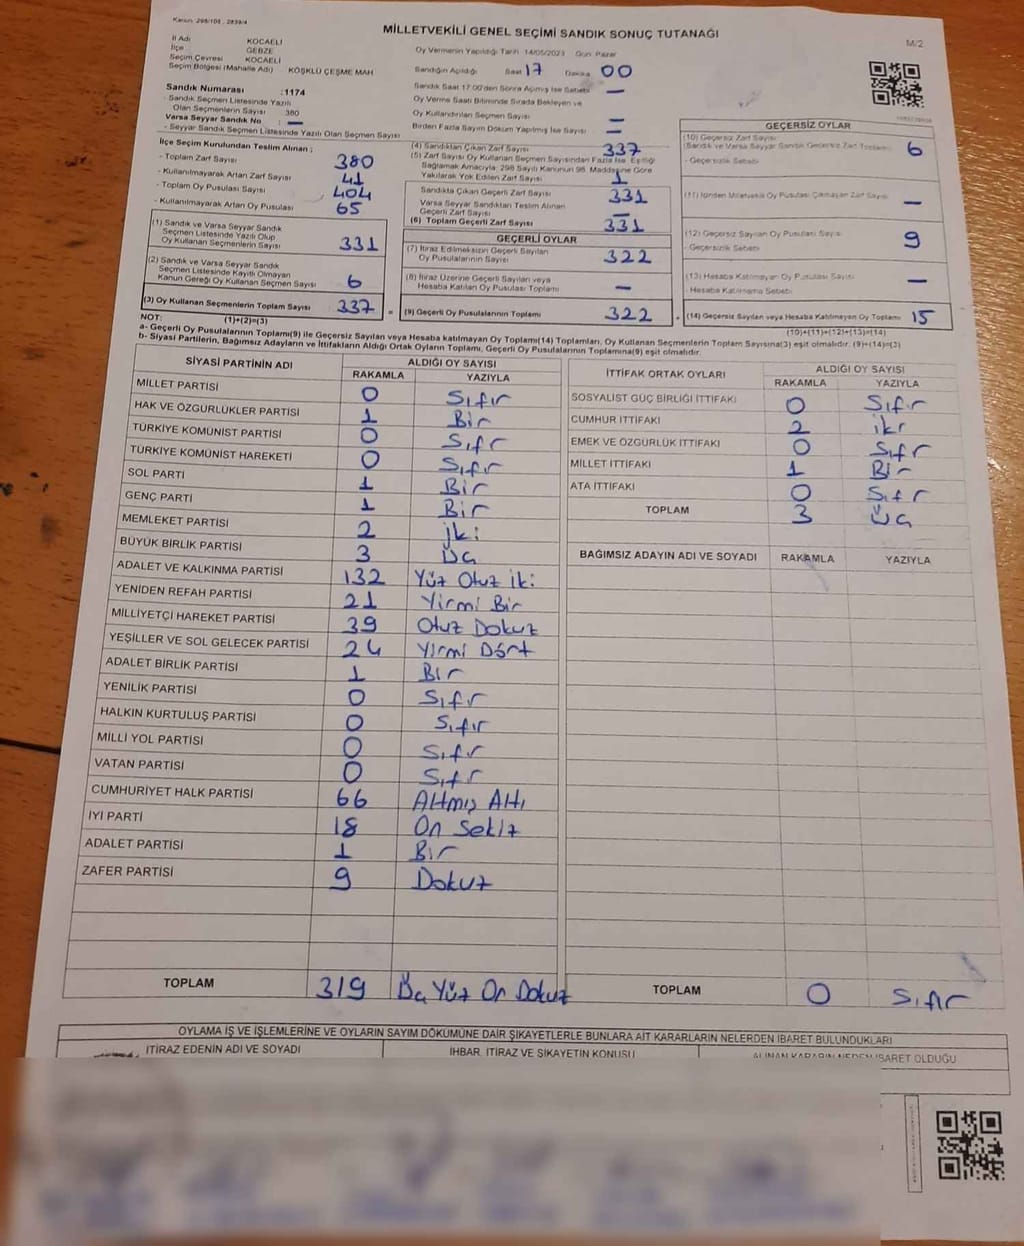 Kanun: 298/105 , 2839/4
MİLLETVEKİLİ GENEL SEÇİMİ SANDIK SONUÇ TUTANAĞI
M/2
İl Adı KOCAELİ
İlçe GEBZE
Seçim Çevresi KOCAELİ
Seçim Bölgesi (Mahalle Adı) KÖŞKLÜ ÇEŞME MAH
Oy Vermenin Yapıldığı Tarih 14/05/2023 Gün: Pazar
Sandığın Açıldığı Saat 17 Dakika 00
Sandık Saat 17.00'den Sonra Açılmış İse Sebebi —
Oy Verme Saati Bitiminde Sırada Bekleyen ve
Oy Kullandırılan Seçmen Sayısı —
Birden Fazla Sayım Döküm Yapılmış İse Sayısı —
Sandık Numarası :1174
- Sandık Seçmen Listesinde Yazılı
Olan Seçmenlerin Sayısı 380
Varsa Seyyar Sandık No : —
- Seyyar Sandık Seçmen Listesinde Yazılı Olan Seçmen Sayısı
İlçe Seçim Kurulundan Teslim Alınan ;
- Toplam Zarf Sayısı 380
- Kullanılmayarak Artan Zarf Sayısı 41
- Toplam Oy Pusulası Sayısı 404
- Kullanılmayarak Artan Oy Pusulası 65
(1) Sandık ve Varsa Seyyar Sandık
Seçmen Listesinde Yazılı Olup
Oy Kullanan Seçmenlerin Sayısı 331
(2) Sandık ve Varsa Seyyar Sandık
Seçmen Listesinde Kayıtlı Olmayan
Kanun Gereği Oy Kullanan Seçmen Sayısı 6
(3) Oy Kullanan Seçmenlerin Toplam Sayısı 337
(4) Sandıktan Çıkan Zarf Sayısı 337
(5) Zarf Sayısı Oy Kullanan Seçmen Sayısından Fazla İse, Eşitliği
Sağlamak Amacıyla, 298 Sayılı Kanunun 98. Maddesine Göre
Yakılarak Yok Edilen Zarf Sayısı 1
Sandıkta Çıkan Geçerli Zarf Sayısı 331
Varsa Seyyar Sandıktan Teslim Alınan
Geçerli Zarf Sayısı —
(6) Toplam Geçerli Zarf Sayısı 331
GEÇERLİ OYLAR
(7) İtiraz Edilmeksizin Geçerli Sayılan
Oy Pusulalarının Sayısı 322
(8) İtiraz Üzerine Geçerli Sayılan veya
Hesaba Katılan Oy Pusulası Toplamı —
= (9) Geçerli Oy Pusulalarının Toplamı 322
GEÇERSİZ OYLAR
(10) Geçersiz Zarf Sayısı
(Sandık ve Varsa Seyyar Sandık Geçersiz Zarf Toplamı) 6
- Geçersizlik Sebebi
(11) İçinden Milletvekili Oy Pusulası Çıkmayan Zarf Sayısı —
(12) Geçersiz Sayılan Oy Pusulası Sayısı 9
- Geçersizlik Sebebi
(13) Hesaba Katılmayan Oy Pusulası Sayısı —
- Hesaba Katılmama Sebebi
+ (14) Geçersiz Sayılan veya Hesaba Katılmayan Oy Toplamı 15
NOT: (1)+(2)=(3) (10)+(11)+(12)+(13)=(14)
a- Geçerli Oy Pusulalarının Toplamı(9) ile Geçersiz Sayılan veya Hesaba katılmayan Oy Toplamı(14) Toplamları, Oy Kullanan Seçmenlerin Toplam Sayısına(3) eşit olmalıdır. (9)+(14)=(3)
b- Siyasi Partilerin, Bağımsız Adayların ve İttifakların Aldığı Ortak Oyların Toplamı, Geçerli Oy Pusulalarının Toplamına(9) eşit olmalıdır.
SİYASİ PARTİNİN ADI ALDIĞI OY SAYISI
RAKAMLA YAZIYLA
MİLLET PARTİSİ 0 Sıfır
HAK VE ÖZGÜRLÜKLER PARTİSİ 1 Bir
TÜRKİYE KOMÜNİST PARTİSİ 0 Sıfır
TÜRKİYE KOMÜNİST HAREKETİ 0 Sıfır
SOL PARTİ 1 Bir
GENÇ PARTİ 1 Bir
MEMLEKET PARTİSİ 2 İki
BÜYÜK BİRLİK PARTİSİ 3 Üç
ADALET VE KALKINMA PARTİSİ 132 Yüz Otuz iki
YENİDEN REFAH PARTİSİ 21 Yirmi Bir
MİLLİYETÇİ HAREKET PARTİSİ 39 Otuz Dokuz
YEŞİLLER VE SOL GELECEK PARTİSİ 24 Yirmi Dört
ADALET BİRLİK PARTİSİ 1 Bir
YENİLİK PARTİSİ 0 Sıfır
HALKIN KURTULUŞ PARTİSİ 0 Sıfır
MİLLİ YOL PARTİSİ 0 Sıfır
VATAN PARTİSİ 0 Sıfır
CUMHURİYET HALK PARTİSİ 66 Altmış Altı
İYİ PARTİ 18 On Sekiz
ADALET PARTİSİ 1 Bir
ZAFER PARTİSİ 9 Dokuz
TOPLAM 319 Üç Yüz On Dokuz
İTTİFAK ORTAK OYLARI ALDIĞI OY SAYISI
RAKAMLA YAZIYLA
SOSYALİST GÜÇ BİRLİĞİ İTTİFAKI 0 Sıfır
CUMHUR İTTİFAKI 2 iki
EMEK VE ÖZGÜRLÜK İTTİFAKI 0 Sıfır
MİLLET İTTİFAKI 1 Bir
ATA İTTİFAKI 0 Sıfır
TOPLAM 3 Üç
BAĞIMSIZ ADAYIN ADI VE SOYADI RAKAMLA YAZIYLA
TOPLAM 0 Sıfır
OYLAMA İŞ VE İŞLEMLERİNE VE OYLARIN SAYIM DÖKÜMÜNE DAİR ŞİKAYETLERLE BUNLARA AİT KARARLARIN NELERDEN İBARET BULUNDUKLARI
İTİRAZ EDENİN ADI VE SOYADI İHBAR, İTİRAZ VE ŞİKAYETİN KONUSU ALINAN KARARIN NEDEN İBARET OLDUĞU